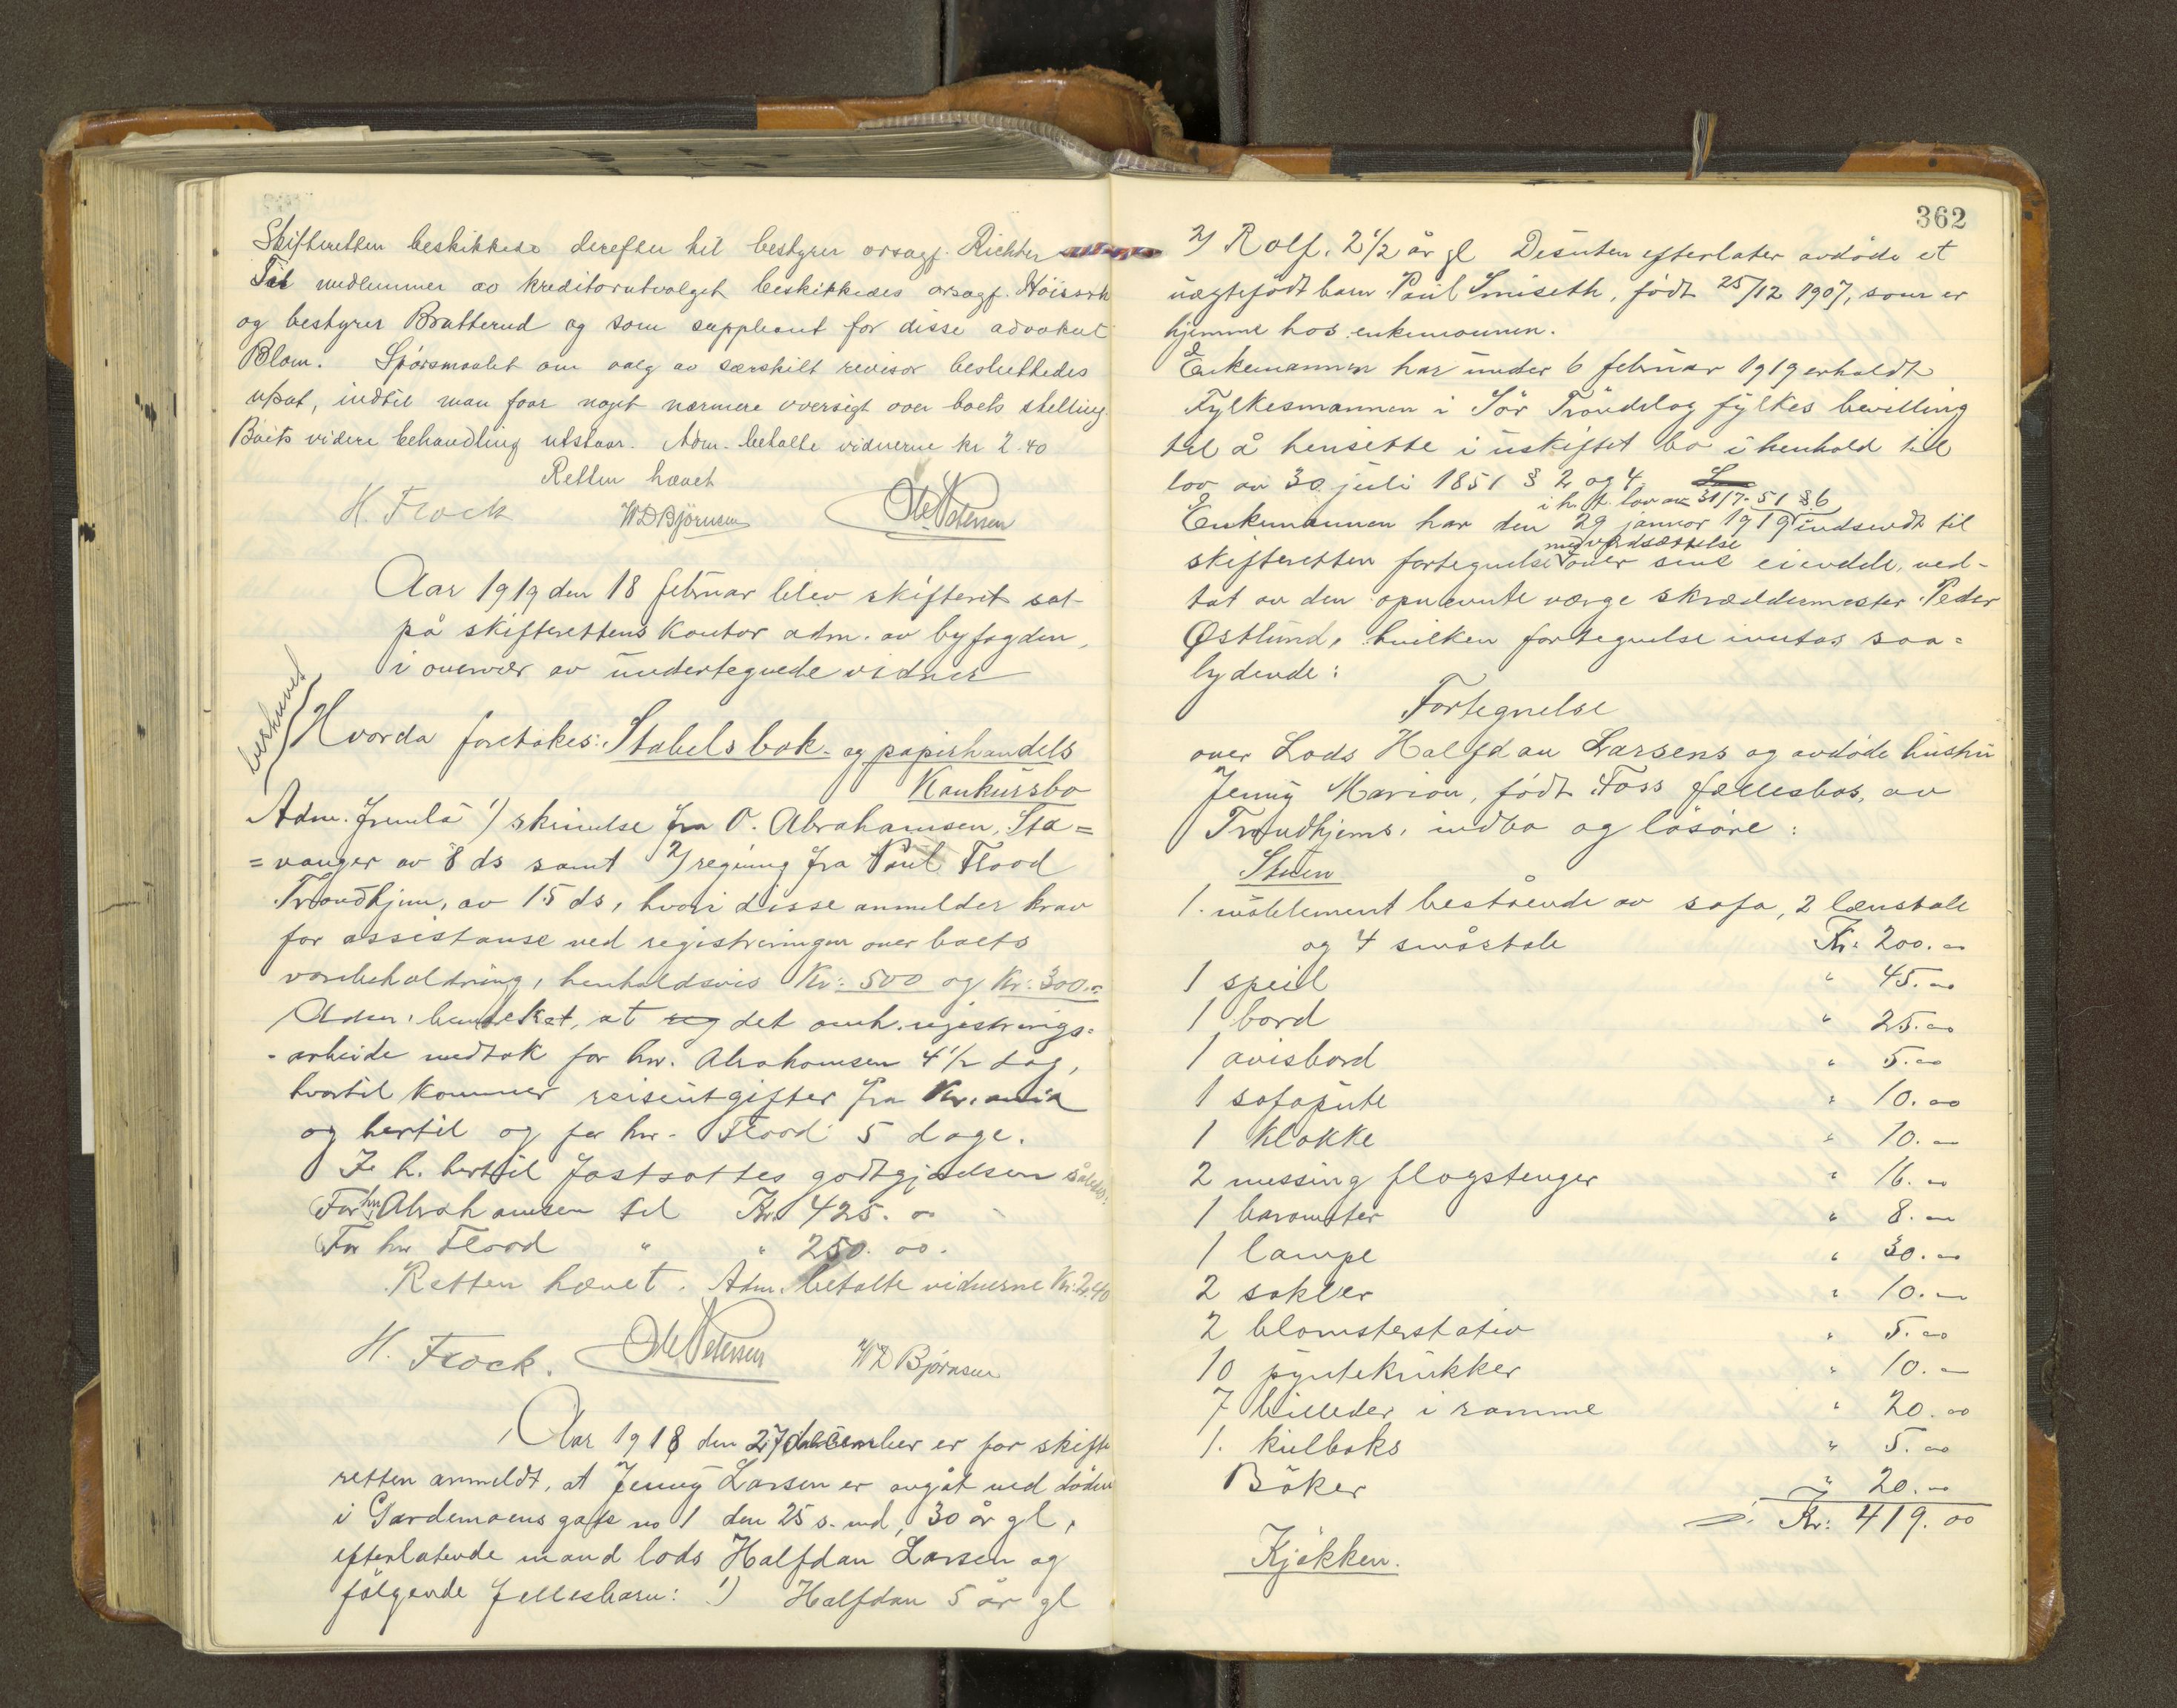 Skifteretten beskikkede derefter til bestyrer orsagf. Richter
Til medlemmer av kreditorutvalget beskikkedes orsagf.
og bestyrer Bratterud og som suppleant for disse advokat
Blom. Spörsmaalet om valg av særskilt revisor besluttedes
utsat, indtil man faar noget nærmere oversigt over boets stilling.
Boets videre behandling utstaar. Adm. betalte vidnerne kr 2.40
Retten hævet
H. Flock WD Björnsen Ole Petersen
Aar 1919 den 18 februar blev skifteret sat
på skifterettens kontor adm. av byfogden,
i overvær av undertegnede vidner
beskrevet
Hvorda foretokes: Stabels bok- og papirhandels
Konkursbo
Adm. fremla 1) skrivelse fra O. Abrahamsen, Sta=
=vanger av 8 ds samt 2) regning fra Paul Flood
Trondhjem, av 15 ds, hvori disse anmelder krav
for assistanse ved registreringen over boets
varebeholdning, henholdsvis Kr: 500 og Kr: 300.-
Adm. bemerket, at det omh. registrerings-
-arbeide medtok for hr. Abrahamsen 4 1/2 dag,
hvortil kommer reiseutgifter fra Kr.ania
og hertil og for hr. Flood 5 dage.
I h. hertil fastsattes godtgjørelsen således:
For hr. Abrahamsen til Kr. 425. oo
For hr Flood " " 250. oo.
Retten hævet. Adm. betalte vidnerne Kr: 2,40
H. Flock. Ole Petersen WD Bjørnsen
Aar 1918 den 27 december er for skifte
retten anmeldt, at Jenny Larsen er avgåt ved döden
i Gardemoens gate no 1 den 25 s. md, 30 år gl,
efterlatende mand lods Halfdan Larsen og
fölgende fellesbarn: 1) Halfdan 5 år gl
362
2) Rolf. 2 1/2 år gl Desuten efterlater avdöde et
uægtefödt barn Paul Smiseth, födt 25/12 1907, som er
hjemme hos enkemannen.
Enkemannen har under 6 februar 1919 erholdt
Fylkesmannen i Sör Tröndelag fylkes bevilling
til å hensitte i uskiftet bo i henhold til
lov av 30 juli 1851 § 2 og 4.
i h. t. lov av 31/7-51 § 6
Enkemannen har den 29 januar 1919 indsendt til
med verdsættelse
skifteretten fortegnelse over sine eiendele, ved-
tat av den opnevnte verge skræddermester Peder
Østlund, hvilken fortegnelse inntas saa=
lydende:
Fortegnelse
over Lods Halfdan Larsens og avdöde hustru
Jenny Marion, födt Foss fællesbos, av
Trondhjems, indbo og lösöre:
Stuen
1. möblement bestående av sofa, 2 lænstole
og 4 småstole Kr: 200.oo
1 speil " 45.oo
1 bord " 25.oo
1 avisbord " 5.oo
1 sofapute " 10.oo
1 klokke " 10.oo
2 messing flagstenger " 16.oo
1 barometer " 8.oo
1 lampe " 30.oo
2 sokler " 10.oo
2 blomsterstativ " 5.oo
10 pyntekrukker " 10.oo
7 billeder i ramme " 20.oo
1. kulboks " 5.oo
Böker " 20.oo
Kr: 419.oo
Kjökken.